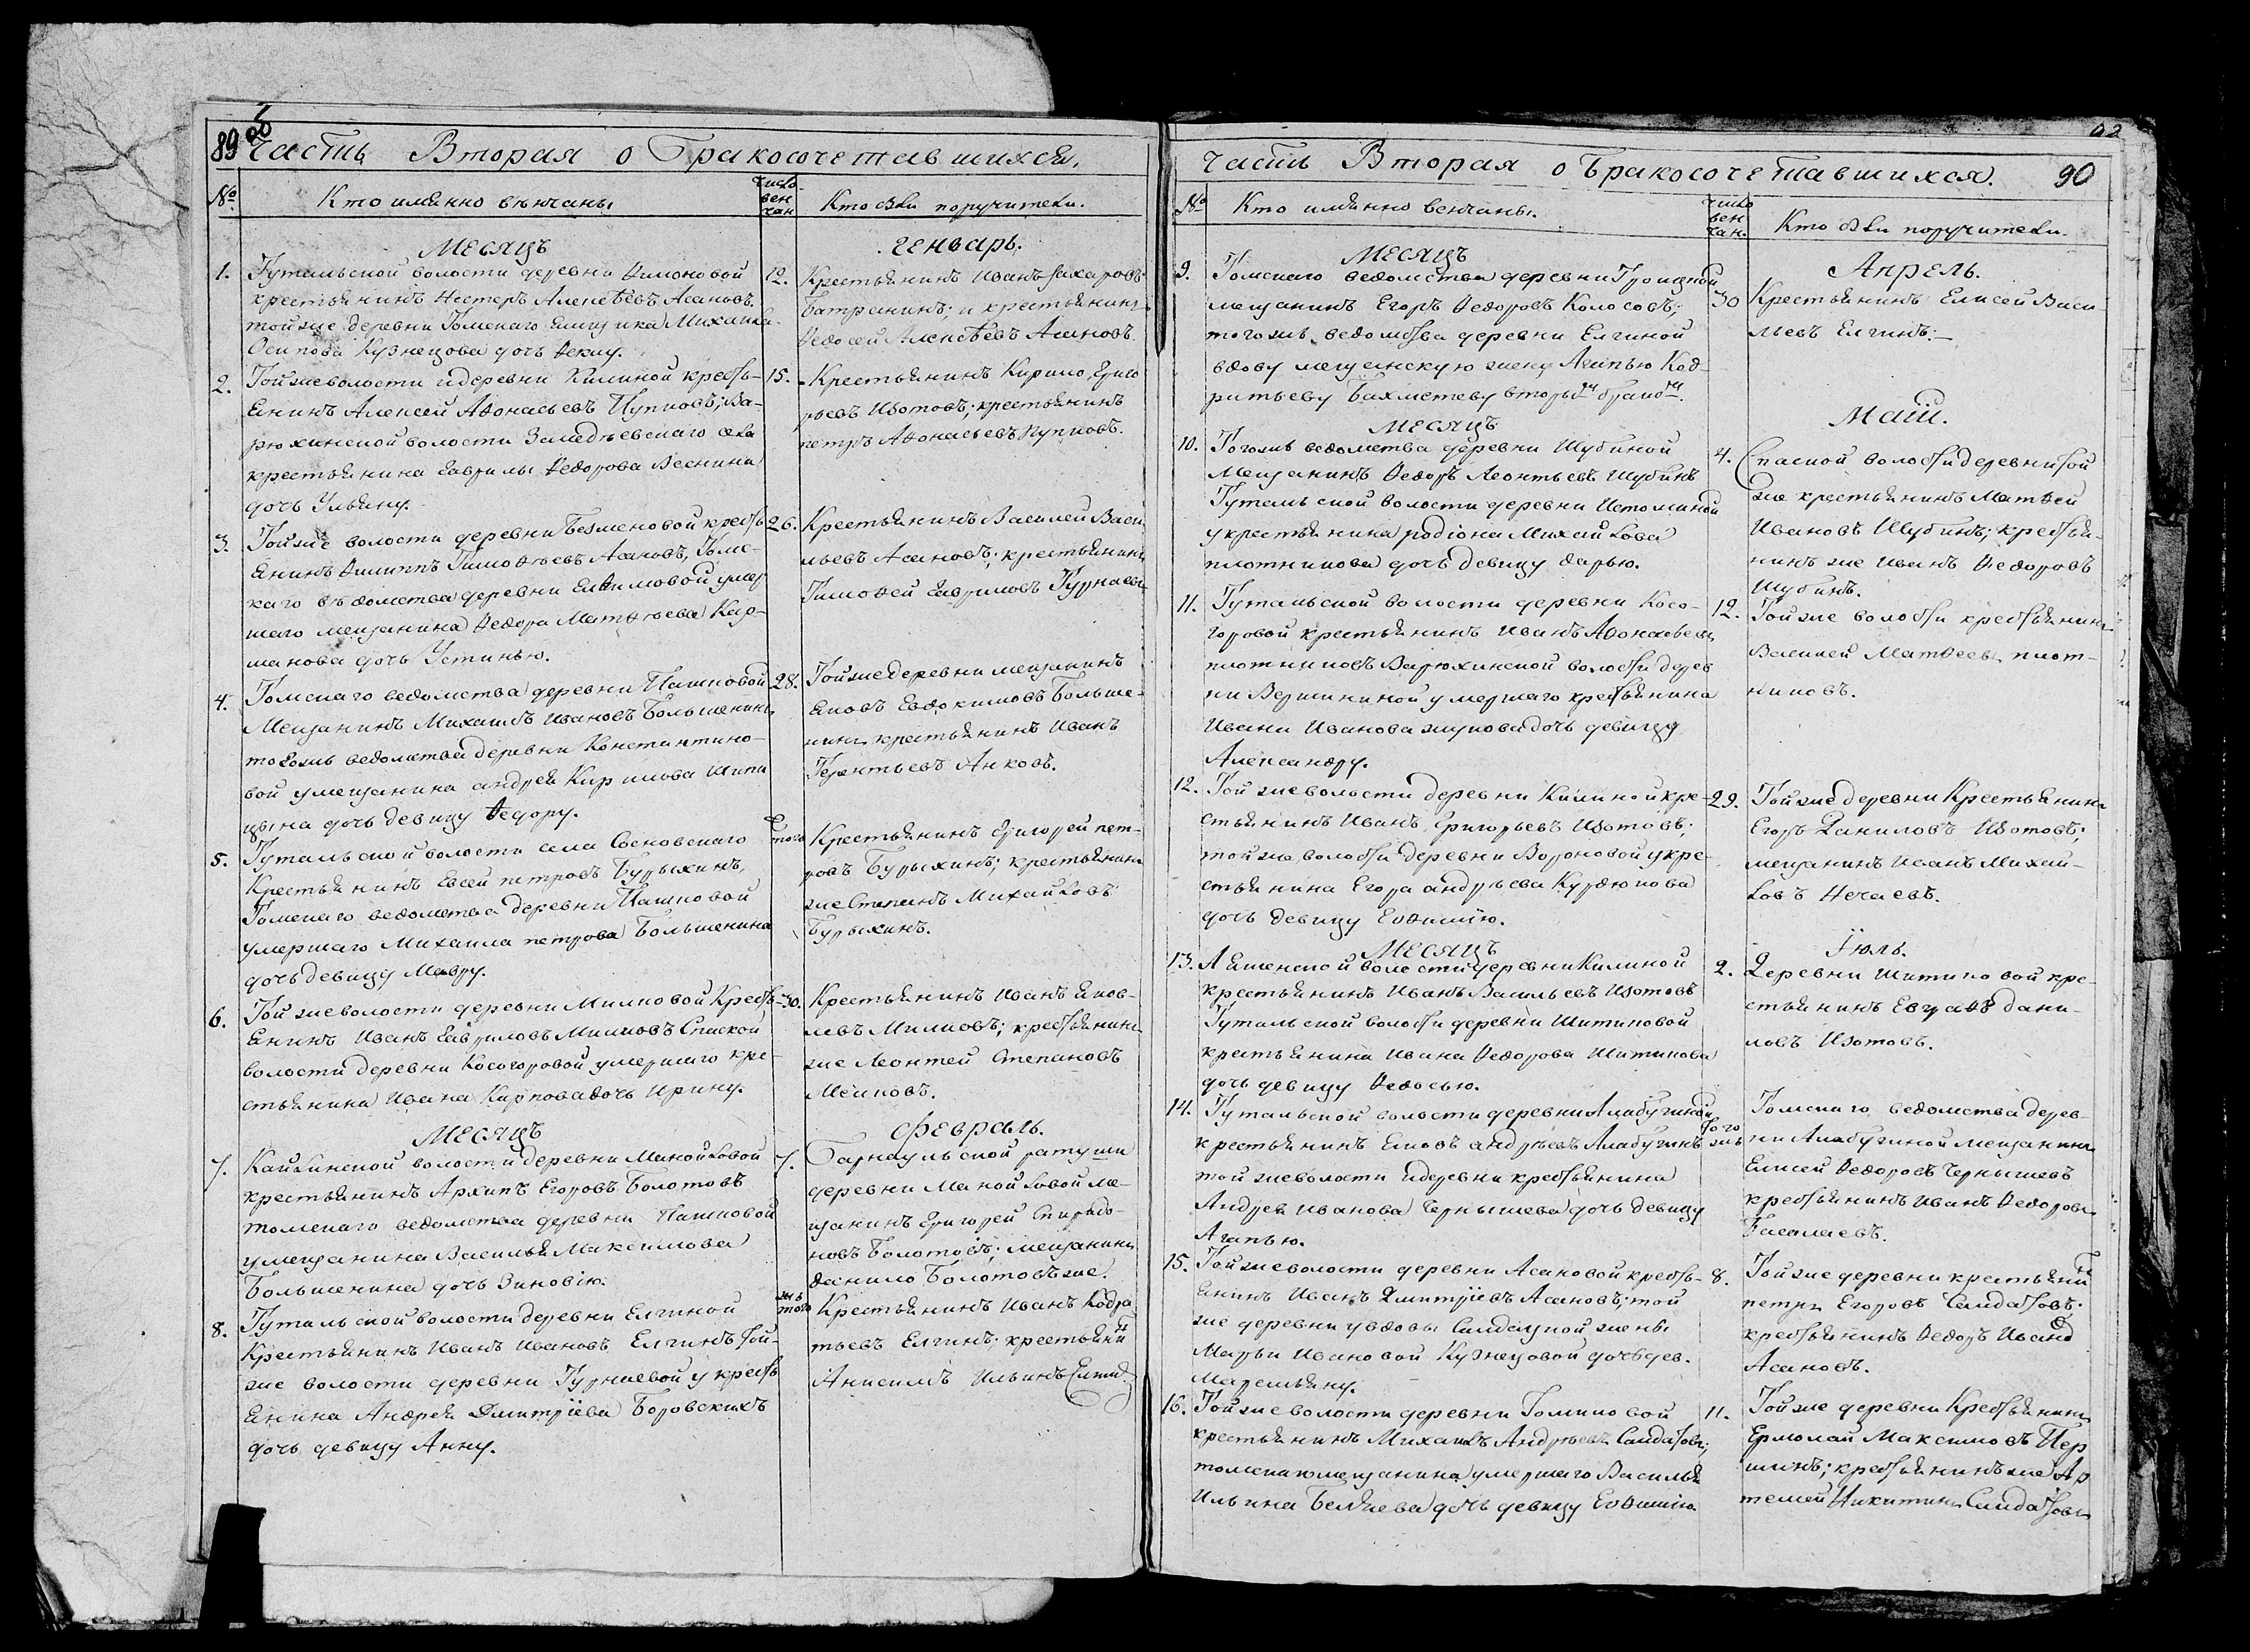 89 об
Часть Вторая о Бракосочетавшихся.
№
Кто имянно венчаны
число вен чан
Кто были поручители.
Месяцъ
Генварь.
1.
Тутальской волости деревни Филоновой
крестьянинъ Нестеръ Алексѣевъ Асановъ.
тойже деревни Томскаго ямщика Михаила
Осипова Кузнецова дочь Феклу.
12.
Крестьянинъ Иванъ Захаровъ
Батранинъ; и крестьянинъ
Федосей Алексѣевъ Асановъ.
2.
Тойже волости и деревни Килиной кресть-
янинъ Алексей Афонасьевъ Пупковъ; Ва-
рюхинской волости Зеледѣевскаго села
крестьянина Гаврилы Федорова Веснина
дочь Ульяну.
15.
Крестьянинъ Кирило Григо
рьевъ Изотовъ; крестьянинъ
петръ Афонасьевъ Пупковъ.
3.
Тойже волости деревни Безменовой кресть
янинъ Филиппъ Тимофѣевъ Асановъ, Томс-
каго ведомства деревни Ефимовой умер
шаго мещанина Федора Матфѣева Кар-
манова дочь Устинью.
26.
Крестьянинъ Василей Васи
льевъ Асановъ; крестьянинъ
Тимофей Гавриловъ Гурнаевъ
4.
Томскаго ведомства деревни Пашковой
Мещанинъ Михаилъ Ивановъ Большенинъ
тогожъ ведомства деревни Константино-
вой у мещанина андрея Кирилова Шипи
цына дочь девицу Федору.
28.
Тойже деревни мещанинъ
Яковъ Евдокимовъ Больше-
нинъ крестьянинъ Иванъ
Терентьевъ Анковъ.
5.
Тутальской волости села Сосновскаго
Крестьянинъ Евсей петровъ Бурыхинъ,
Томскаго ведомства деревни Пашковой
умершаго Михаила петрова Большенина
дочь девицу Мавру.
того
Крестьянинъ Григорей пет-
ровъ Бурыхинъ; крестьянинъ
же Степанъ Михайловъ
Бурыхинъ.
6.
Тойже волости деревни Милковой Кресть-
янинъ Иванъ Гавриловъ Милковъ Спаской
волости деревни Косогоровой умершаго кре-
стьянина Ивана Карпова дочь Ирину.
30.
Крестьянинъ Иванъ Яков-
левъ Милковъ; крестьянинъ
же Леонтей Степановъ
Месяцъ
февраль.
7.
Кайлинской волости деревни Манойловой
крестьянинъ Архипъ Егоровъ Болотовъ
томскаго ведомства деревни Пашковой
у мещанина Василья Максимова
Большенина дочь Зиновію.
7.
Барнаульской ратуши
деревни Манойловой ме-
щанинъ Григорей Спиридо-
новъ Болотовъ; мещанинъ
данило Болотовъ же.
8.
Тутальской волости деревни Елгиной
Крестьянинъ Иванъ Ивановъ Елгинъ той-
же волости деревни Гурнаевой у кресть
янина Андрея Дмитріева Боровскихъ
дочь девицу Анну.
того жъ
Крестьянинъ Иванъ Кодра
тьевъ Елгинъ; крестьянинъ
Анисимъ Ильинъ Елгинъ.
90
Часть Вторая о Бракосочетавшихся.
№
Кто имянно венчаны.
число вен чан.
Кто были поручители.
Месяцъ
Апрель.
9.
Томскаго ведомства деревни Троицкой
мещанинъ Егоръ Федоровъ Колосовъ;
тогожъ ведомства деревни Елгиной
вдову мещанскую жену Агапью Код-
ратьеву Бахметеву вторымъ бракомъ.
30
Крестьянинъ Елисей Васи
льевъ Елгинъ:—
Месяцъ
Май.
10.
Тогожъ ведомства деревни Шубиной
Мещанинъ Федоръ Леонтьевъ Шубинъ
Тутальской волости деревни Истоминой
у крестьянина родіона Михайлова
плотникова дочь девицу дарью.
4.
Спаской волости деревни той
же крестьянинъ Матфей
Ивановъ Шубинъ; крестья-
нинъ же Иванъ Федоровъ
Шубинъ.
11.
Тутальской волости деревни Косо-
горовой крестьянинъ Иванъ Афонасьевъ
плотниковъ Варюхинской волости дерев
ни Вершининой умершаго крестьянина
Ивана Иванова жукова дочь девицу
Александру.
12.
Тойже волости крестьянинъ
Василей Матфеевъ плот-
никовъ.
12.
Тойже волости деревни Килиной кре-
стьянинъ Иванъ Григорьевъ Изотовъ;
тойже волости деревни Вороновой у кре-
стьянина Егора андрѣева Курдюкова
дочь девицу Евфимію.
29.
Тойже деревни Крестьянинъ
Егоръ Даниловъ Изотовъ;
мещанинъ Иванъ Михай-
ловъ Нечаевъ.
Месяцъ
Іюль.
13.
Ояшенской волости деревни Килиной
крестьянинъ Иванъ Васильевъ Изотовъ
Тутальской волости деревни Шитиковой
крестьянина Ивана Федорова Шитикова
дочь девицу Федосью.
2.
Деревни Шитиковой кре-
стьянинъ Евграфъ дани-
ловъ Изотовъ.
14.
Тутальской волости деревни Алабугиной
крестьянинъ Яковъ андрѣевъ Алабугинъ
тойже волости и деревни крестьянина
Андрея Иванова Чернышева дочь девицу
Агапью.
того жъ
Томскаго ведомства дерев
ни Алабугиной мещанинъ
Елисей Федоровъ Чернышевъ
крестьянинъ Иванъ Федоровъ
Басалаевъ.
15.
Тойже волости деревни Асановой кресть-
янинъ Иванъ Дмитріевъ Асановъ; той
же деревни у вдовы Салдацкой жены
Марьи Ивановой Кузнецовой дочь дев.
Маремьяну.
8.
Тойже деревни крестьянинъ
петръ Егоровъ Салдатовъ;
крестьянинъ Федоръ Ивановъ
Асановъ.
16.
Тойже волости деревни Томиловой
крестьянинъ Михаилъ Андрѣевъ Салдатовъ;
томскаго мещанина умершаго Василья
Ильина Беляева дочь девицу Евфимію
11.
Тойже деревни Крестьянинъ
Ермолай Максимовъ Пер
шинъ; крестьянинъ же Ар
темей Никитинъ Салдатовъ